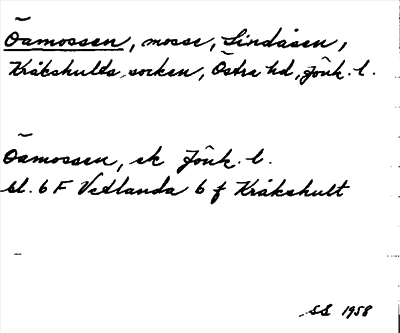 Öamossen, mosse, Lindåsen,
Kråkshults socken, Östra hd, Jönk. l.
Öamossen, ek Jönk. l.
bl. 6 F Vetlanda 6 f Kråkshult
SS 1958